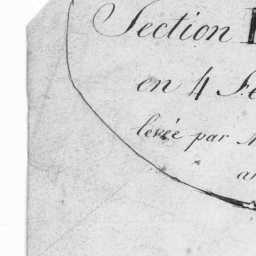 Section
en 4
levée par